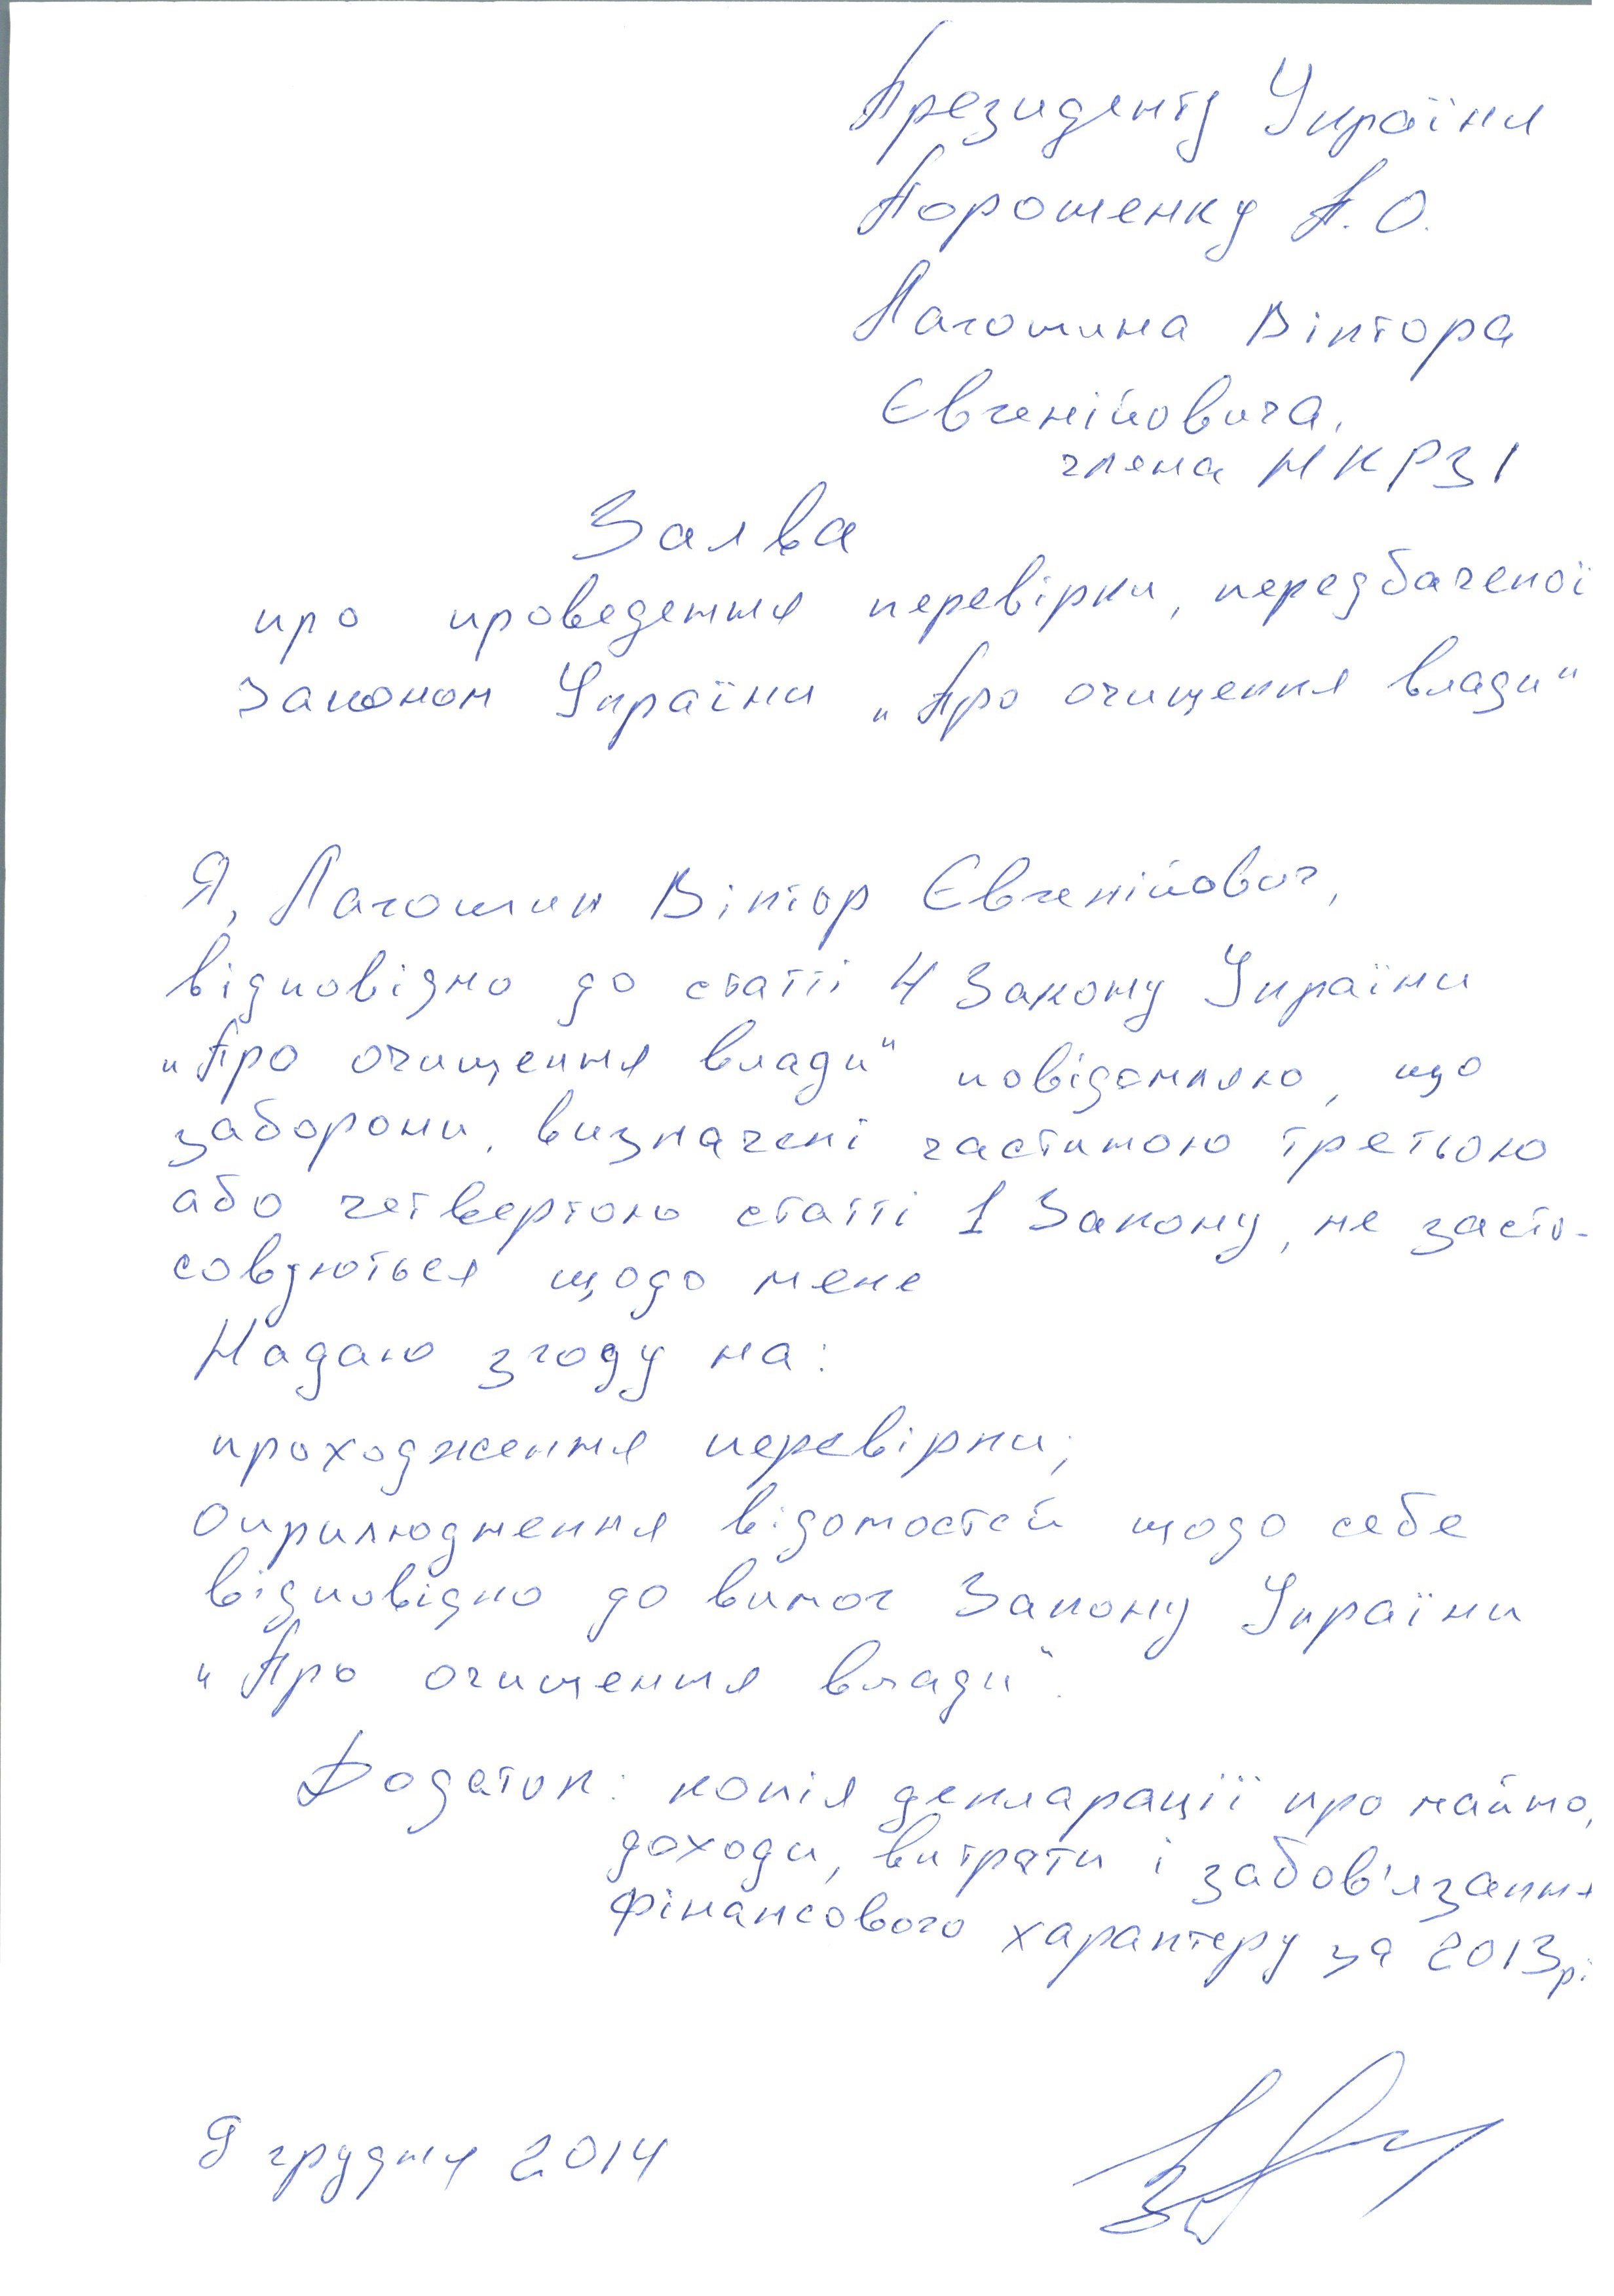 Президенту України
Порошенку П. О.
Лагошина Віктора
Євгенійовича,
члена НКРЗІ
Заява
про проведення перевірки, передбаченої
Законом України „Про очищення влади"
Я, Лагошин Віктор Євгенійович,
відповідно до статті 4 Закону України
„Про очищення влади" повідомляю, що
заборони, визначені частиною третьою
або четвертою статті 1 Закону, не засто-
совуються щодо мене
Надаю згоду на:
проходження перевірки;
оприлюднення відомостей щодо себе
відповідно до вимог Закону України
„Про очищення влади".
Додаток: копія декларації про майно,
доходи, витрати і забов'язання
фінансового характеру за 2013
9 грудня 2014